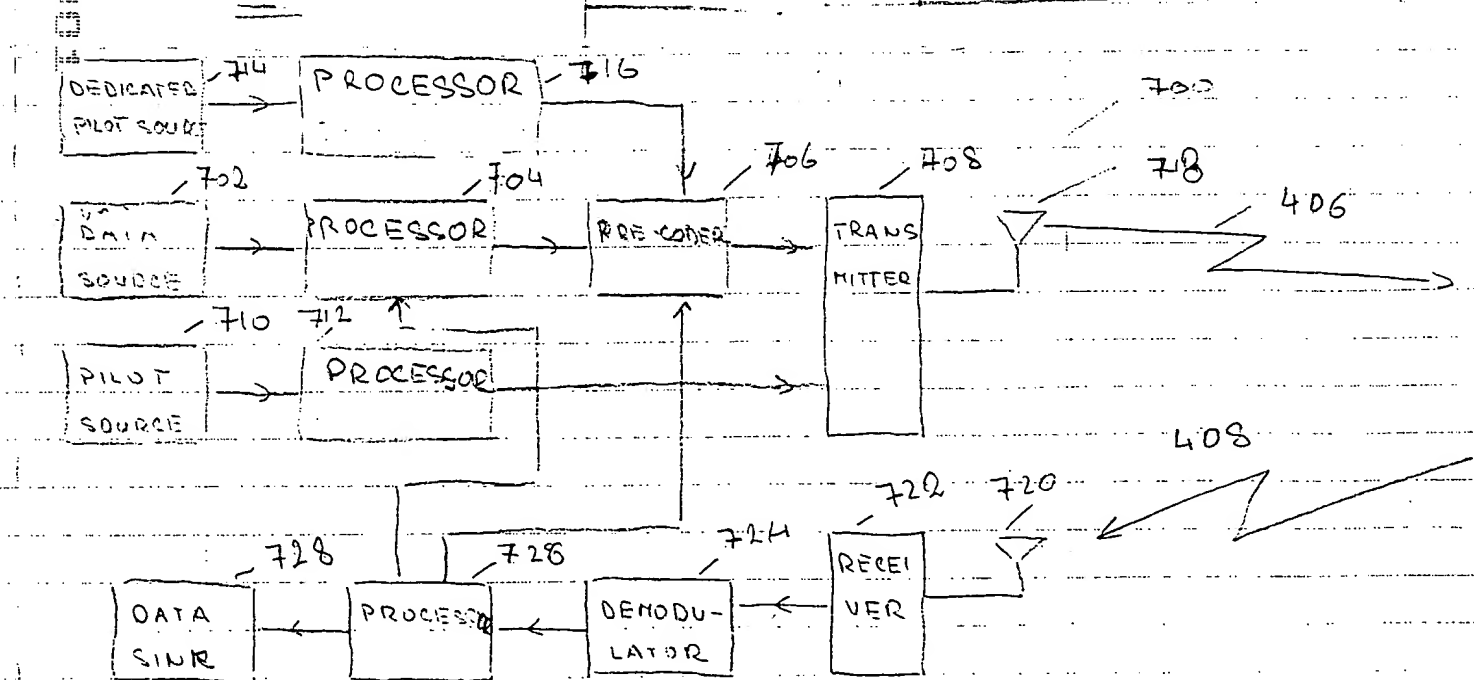 714
716
DEDICATED
PILOT SOURCE
PROCESSOR
700
702
704
706
708
718
406
DATA
SOURCE
PROCESSOR
PRE-CODER
TRANS
MITTER
710
712
PILOT
SOURCE
PROCESSOR
408
722
720
728
728
724
RECEI
VER
DATA
SINK
PROCESSOR
DEMODU-
LATOR